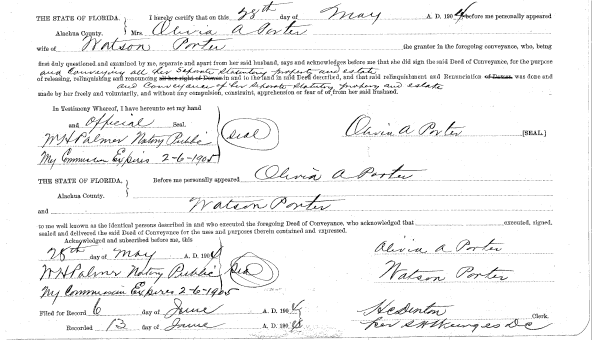 THE STATE OF FLORIDA, } I hereby certify that on this 28th day of May A. D. 1904 before me personally appeared
Alachua County. } Mrs. Olivia A Porter
wife of Watson Porter the grantor in the foregoing conveyance, who, being
first duly questioned and examined by me, separate and apart from her said husband, says and acknowledges before me that she did sign the said Deed of Conveyance, for the purpose
and Conveying all her Separate Statutory property and estate
of releasing, relinquishing and renouncing all her right of Dower in and to the land in said Deed described, and that said relinquishment and Renunciation of Dower was done and
and Conveyance of her Separate Statutory property and estate
made by her freely and voluntarily, and without any compulsion, constraint, apprehension or fear of or from her said husband.
In Testimony Whereof, I have hereunto set my hand
and Official Seal.
W H Palmer Notary Public (seal) Olivia A Porter [SEAL.]
My Commission Expires 2-6-1905
THE STATE OF FLORIDA, } Before me personally appeared Olivia A Porter
Alachua County. }
and Watson Porter
to me well known as the identical persons described in and who executed the foregoing Deed of Conveyance, who acknowledged that executed, signed,
sealed and delivered the said Deed of Conveyance for the uses and purposes therein contained and expressed.
Acknowledged and subscribed before me, this
28th day of May A. D. 1904 Olivia A Porter
W H Palmer Notary Public Seal Watson Porter
My Commission Expires 2-6-1905
Filed for Record 6 day of June A. D. 1904 H C Denton Clerk.
Recorded 13 day of June A. D. 190 per D C